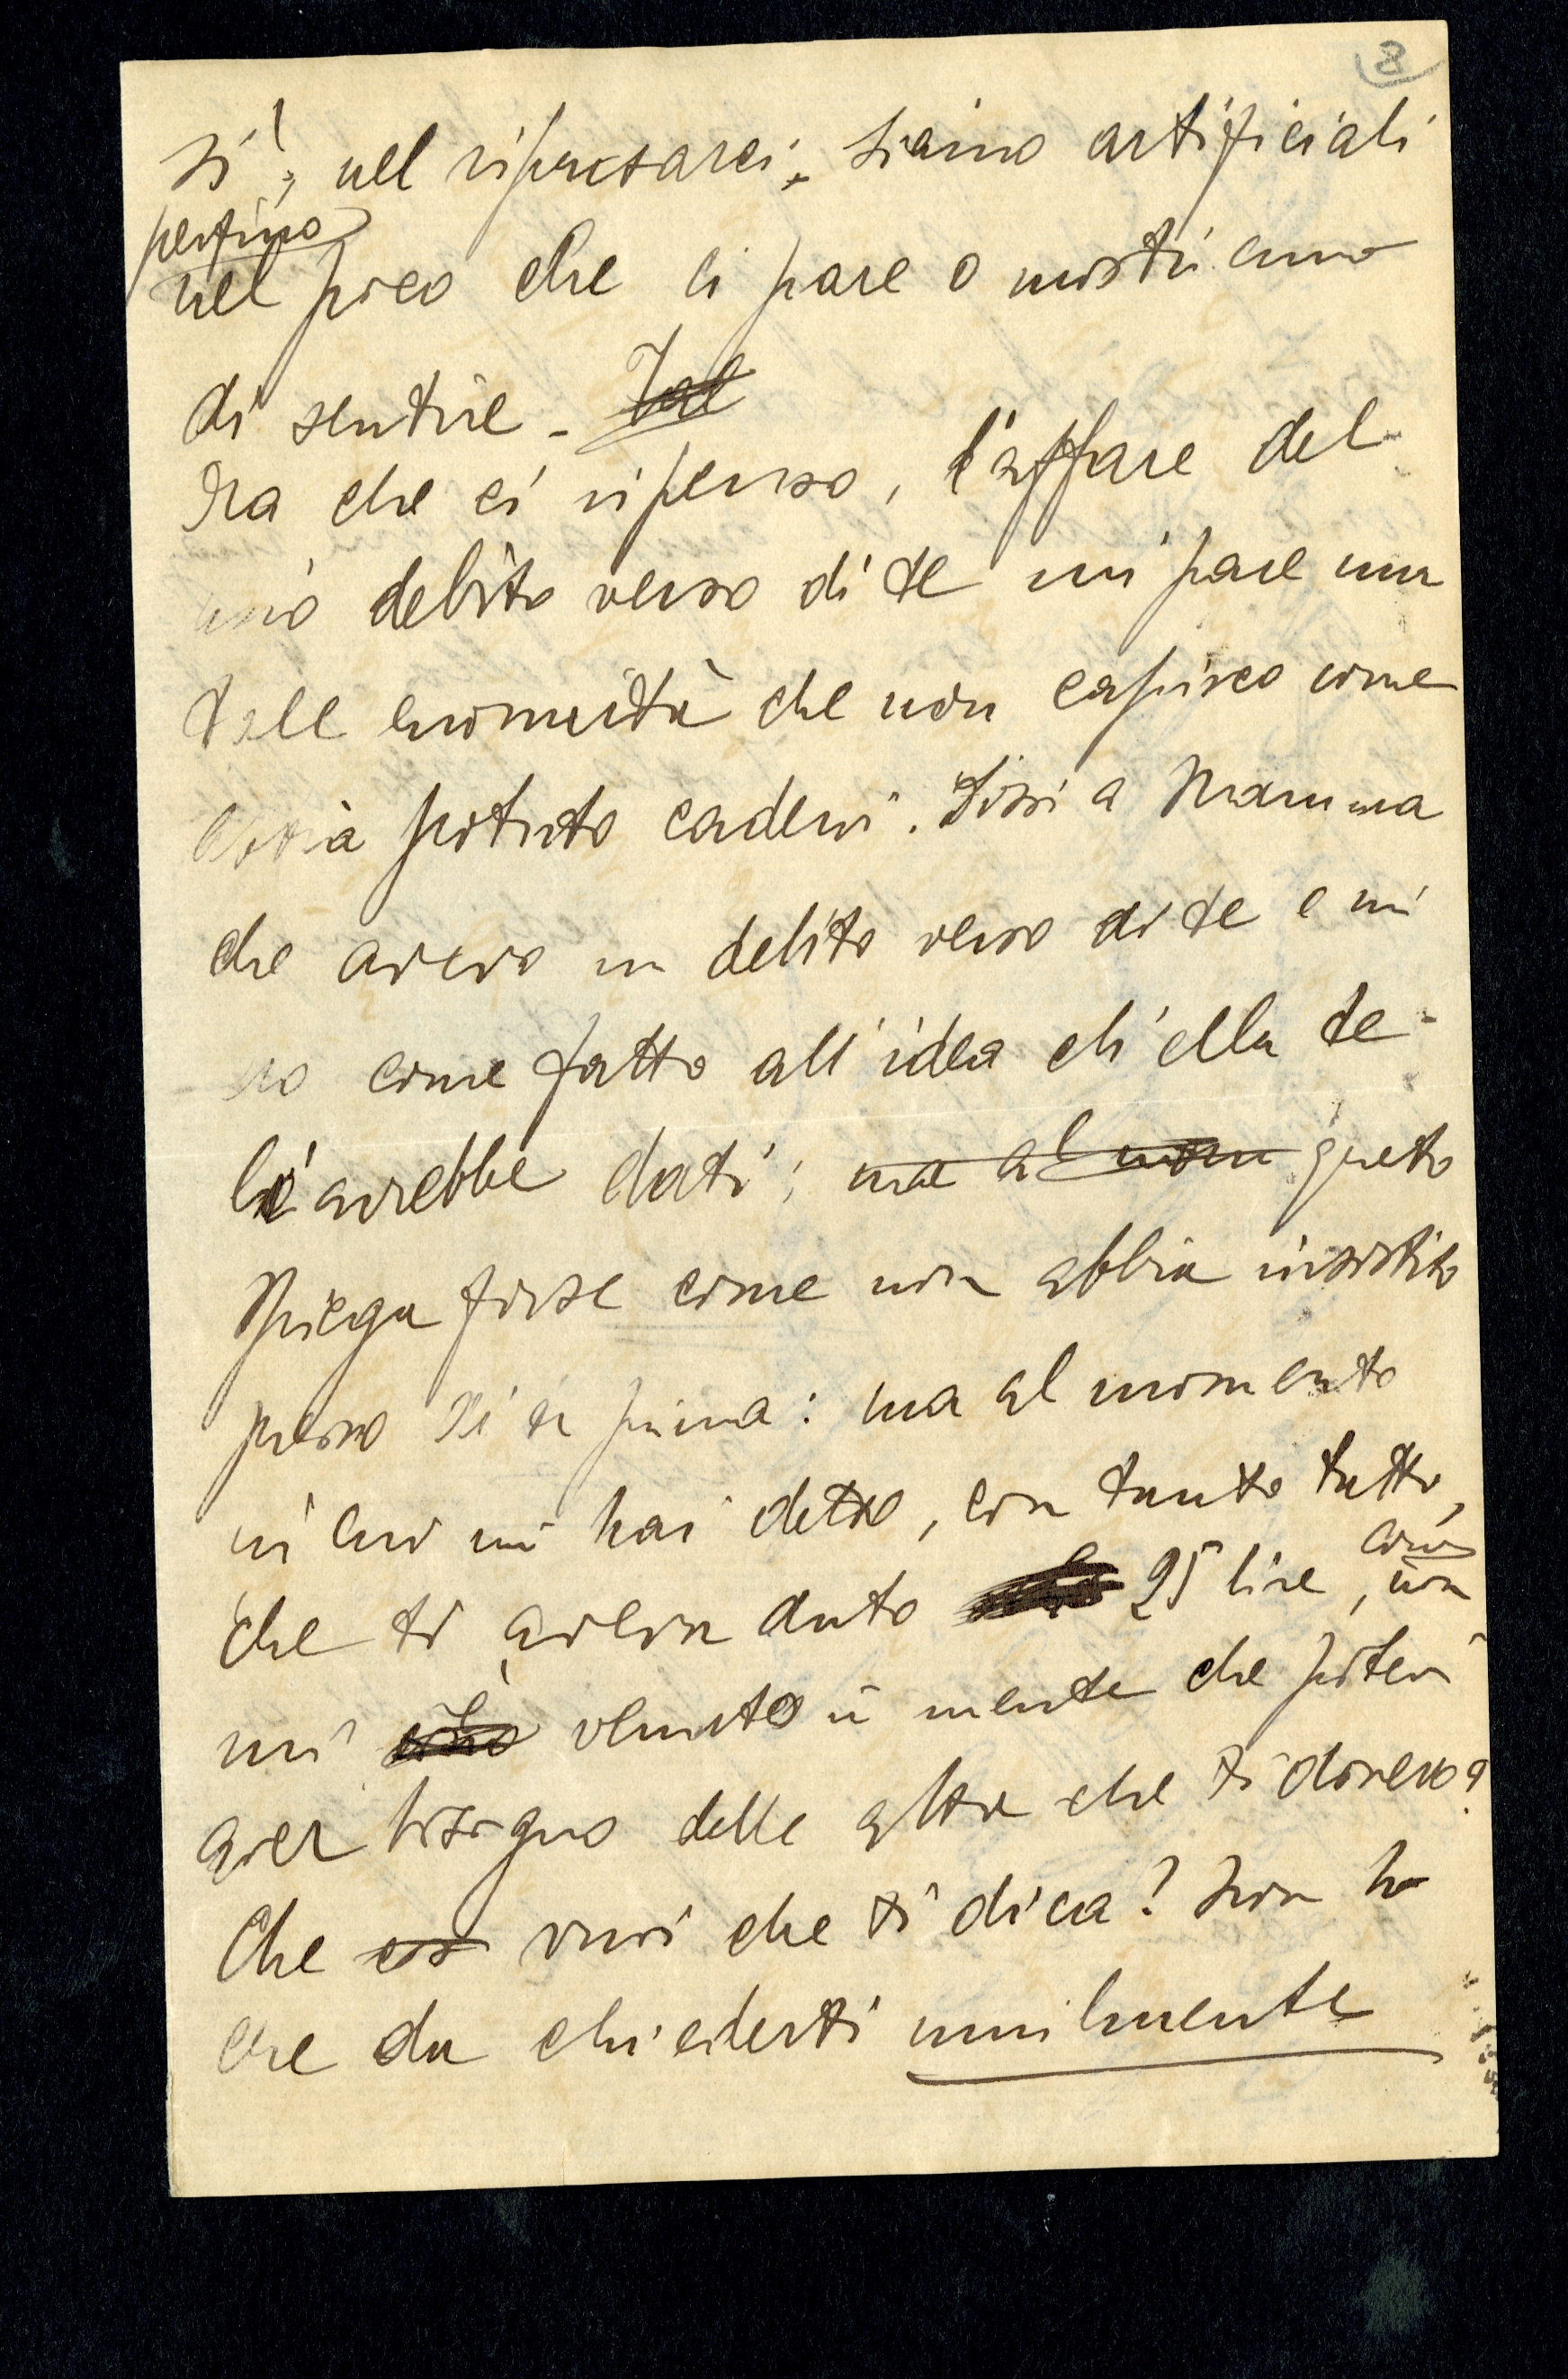 8
sì!, nel ripensarci, siamo artificiali
perfino
nel poco che ci pare o mostriamo
di sentire - Tal
Ora che ci ripenso, l'affare del
mio debito verso di te mi pare una
tale enormità che non capisco come
abbia potuto cadervi. Dissi a Mamma
che avevo un debito verso di te e mi
ero come fatto all'idea ch'ella te
li avrebbe dati; ma al mom questo
spiega forse come non abbia insistito
presso di te prima: ma al momento
in cui mi hai detto, con tanto tatto,
che ti avevan dato 25 lire, com'
non
mi venuto in mente che potevi
aver bisogno delle altre che ti dovevo?
Che cos vuoi che ti dica? Non ho
che da chiederti umilmente